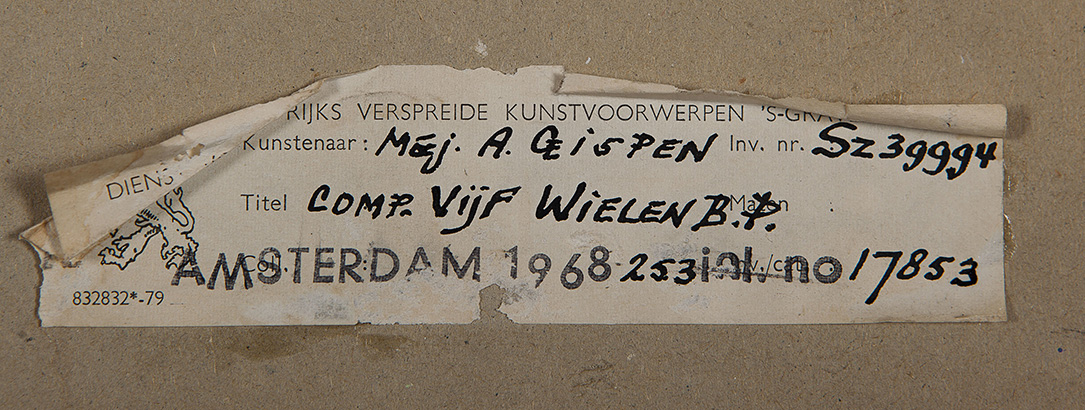 DIENS RIJKS VERSPREIDE KUNSTVOORWERPEN 'S-GRA
Kunstenaar: MEJ. A. GISPEN Inv. nr. SZ39994
Titel COMP. VIJF WIELEN B.P.
AMSTERDAM 1968 253 inl. no 17853
832832*-79